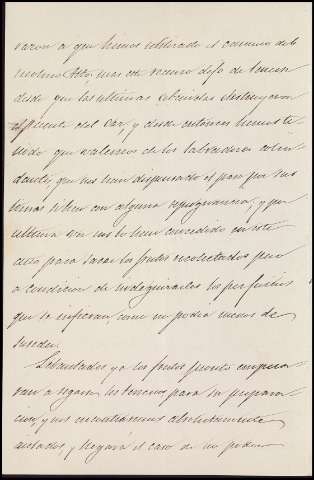 varon a que himos utilizado el camino del
molino Alto, mas este recurso dejo de tener
desde que las ultimas abenidas destruyeron
el puente del Car, y desde entonces hemos te
nido que valernos de los labradores colin
dantes, que nos han dispensado el paso por sus
tierras si bien con alguna repugnancia, y por
ultima vez nos lo han concedido en este
año para sacar los frutos recolectados pero
a condicion de indegnizarles los perjuicios
que se infieran, como no podia menos de
suceder.
Levantados ya los frutos pronto empeza
ran a regarse los terrenos para su prepara
cion, y nos encontraremos absolutamente
aislados, y llegará el caso de no poder